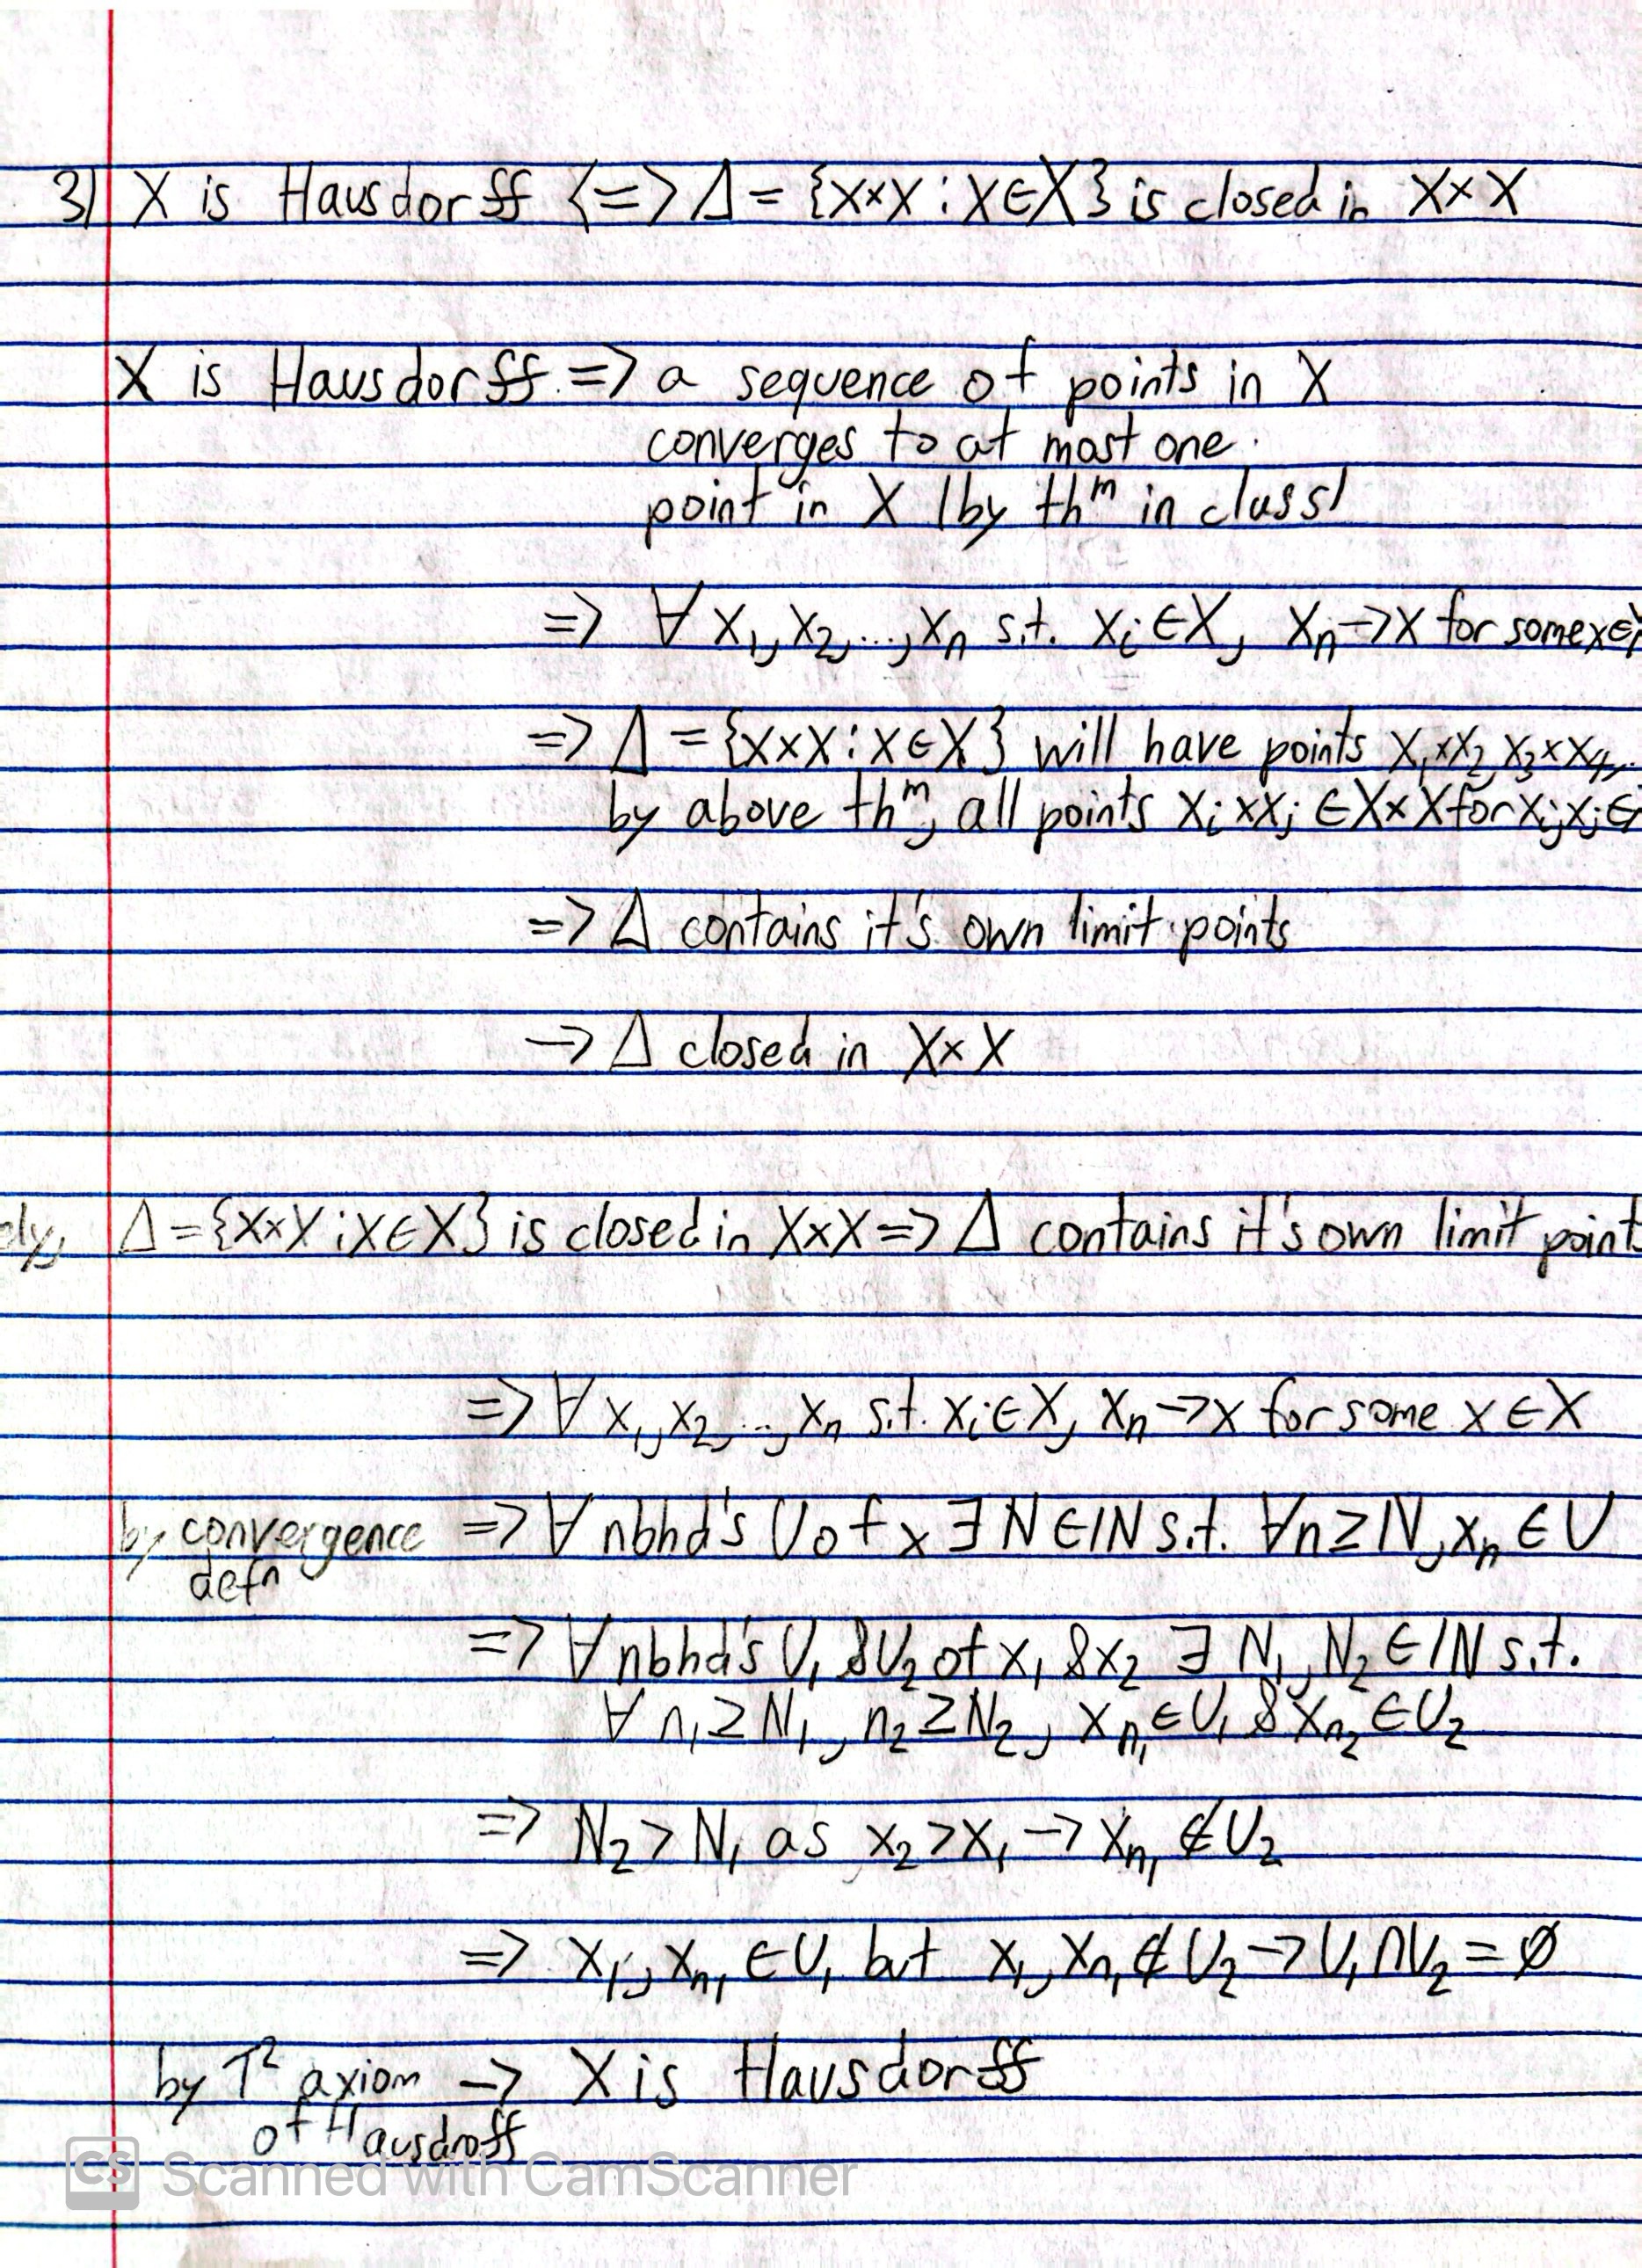 3) X is Hausdorff <=> Δ = {x×x : x∈X} is closed in X×X
X is Hausdorff => a sequence of points in X
converges to at most one
point in X (by thᵐ in class)
=> ∀ x₁, x₂, ..., xₙ s.t. xᵢ ∈ X, xₙ → x for some x∈
=> Δ = {x×x : x∈X} will have points x₁×x₂, x₃×x₄, ..
by above thᵐ, all points xᵢ×xⱼ ∈ X×X for xᵢ, xⱼ ∈
=> Δ contains it's own limit points
-> Δ closed in X×X
Δ = {x×x : x∈X} is closed in X×X => Δ contains it's own limit points
=> ∀ x₁, x₂, ..., xₙ s.t. xᵢ ∈ X, xₙ → x for some x ∈ X
by convergence => ∀ nbhd's U of x ∃ N ∈ ℕ s.t. ∀n ≥ N, xₙ ∈ U
defⁿ
=> ∀ nbhd's U₁ & U₂ of x₁ & x₂ ∃ N₁, N₂ ∈ ℕ s.t.
∀ n₁ ≥ N₁, n₂ ≥ N₂, xₙ₁ ∈ U₁ & xₙ₂ ∈ U₂
=> N₂ > N₁ as x₂ > x₁ → xₙ₁ ∉ U₂
=> x₁, xₙ₁ ∈ U₁ but x₁, xₙ₁ ∉ U₂ → U₁ ∩ U₂ = ∅
by T² axiom -> X is Hausdorff
of Hausdroff
CS Scanned with CamScanner